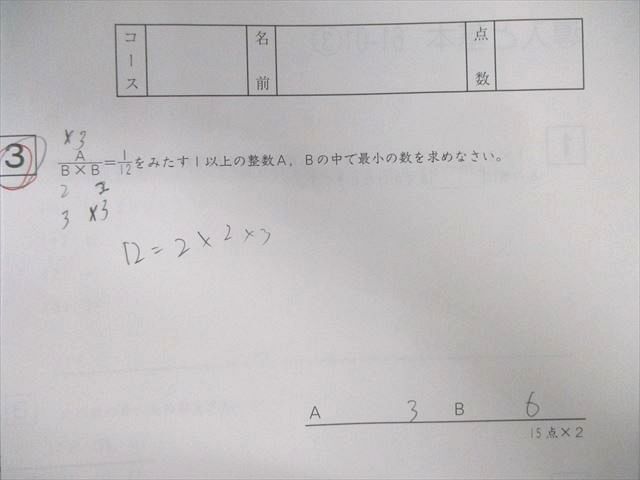 コース 名前 点数
×3
3 A/B×B=1/12をみたす1以上の整数A，Bの中で最小の数を求めなさい。
2 2
3 ×3
12=2×2×3
A 3 B 6
15点×2